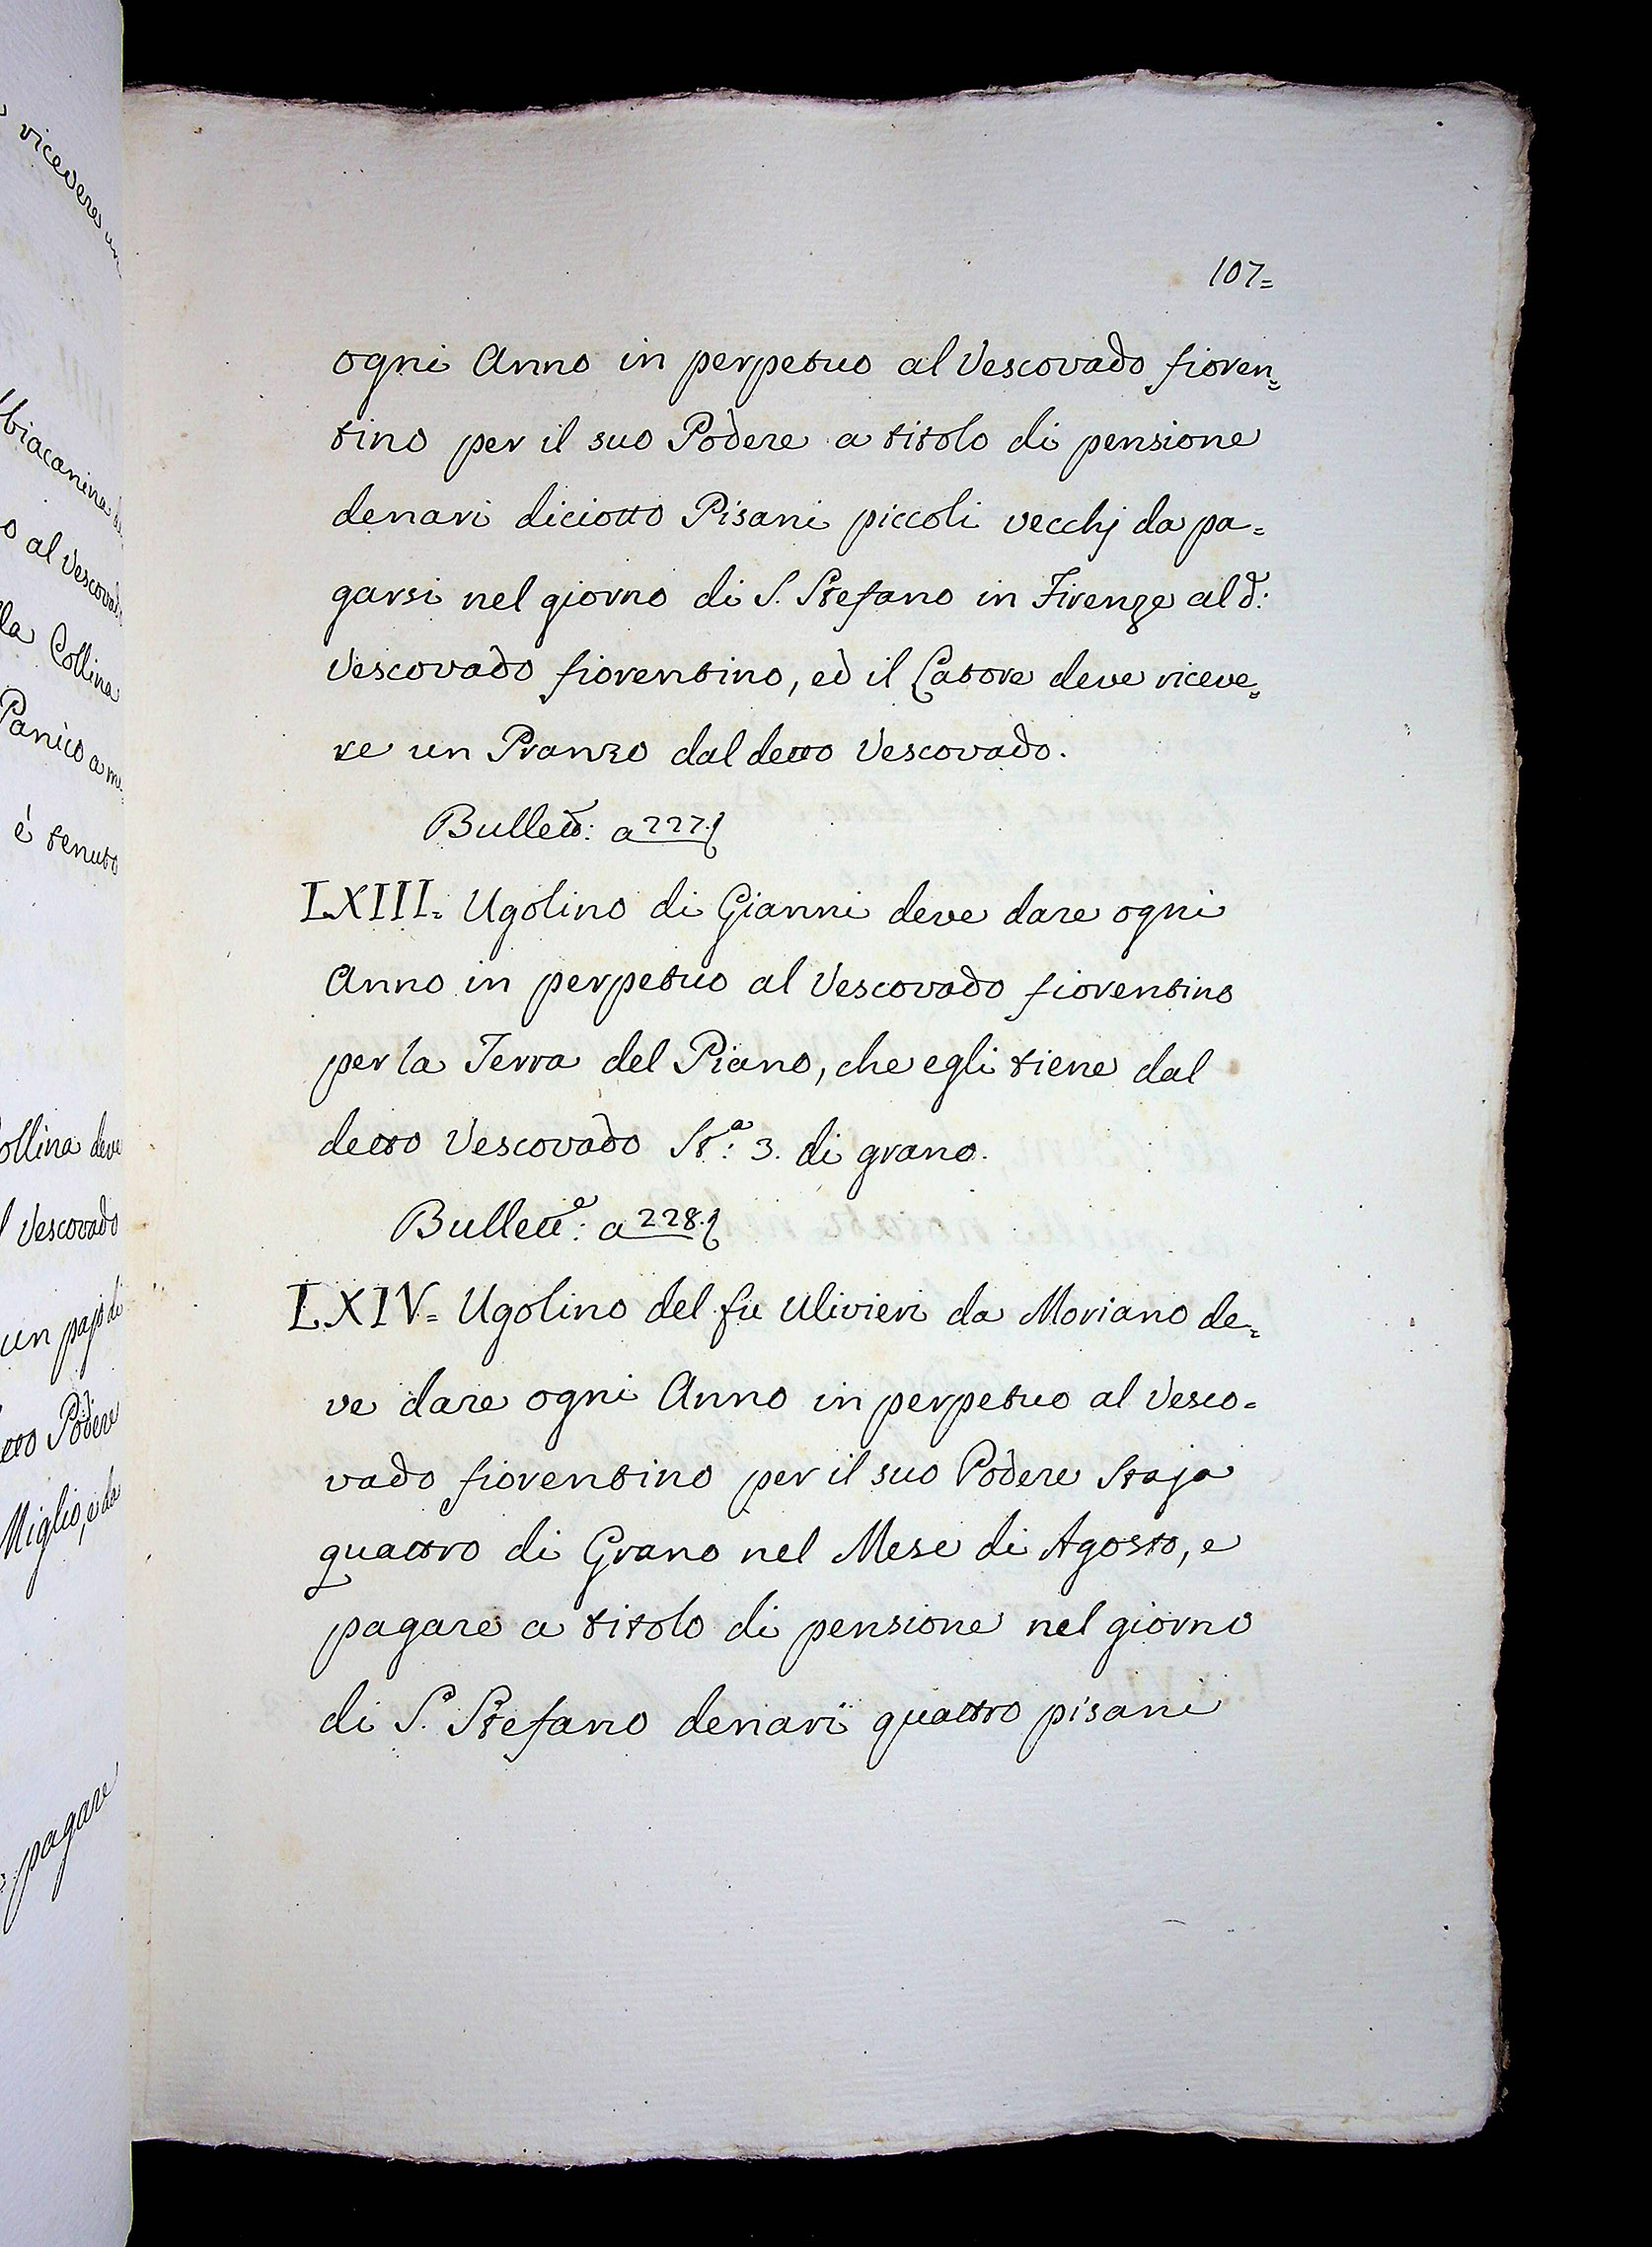 107=
ogni Anno in perpetuo al Vescovado fioren=
tino per il suo Podere a titolo di pensione
denari diciotto Pisani piccoli vecchj da pa=
garsi nel giorno di S. Stefano in Firenze al d:
Vescovado fiorentino, ed il Latore deve riceve=
re un Pranzo dal detto Vescovado.
Bullett: a 227.
LXIII= Ugolino di Gianni deve dare ogni
Anno in perpetuo al Vescovado fiorentino
per la Terra del Piano, che egli tiene dal
detto Vescovado St.ª: 3. di grano.
Bullett.e: a 228.
LXIV= Ugolino del fu Ulivieri da Moriano de=
ve dare ogni Anno in perpetuo al Vesco=
vado fiorentino per il suo Podere Staja
quattro di Grano nel Mese di Agosto, e
pagare a titolo di pensione nel giorno
di S. Stefano denari quattro pisani
vicevere
al Vescovado
Collina
Panico a
è tenuto
Collina deve
Vescovado
un pajo di
Podere
Miglio, e da
pagare